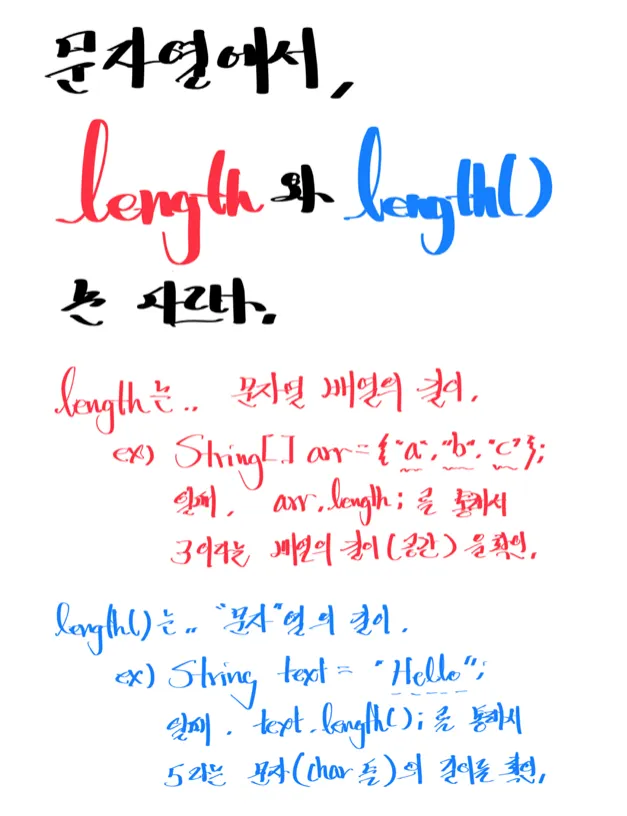 문자열에서,
length와 length()
는 다르다.
length는.. 문자열 배열의 길이.
ex) String[] arr = {"a", "b", "c"};
일때, arr.length; 를 통해서
3이라는 배열의 길이(공간)을 확인.
length()는.. "문자"열의 길이.
ex) String text = "Hello";
일때, text.length(); 를 통해서
5라는 문자(char들)의 길이를 확인.